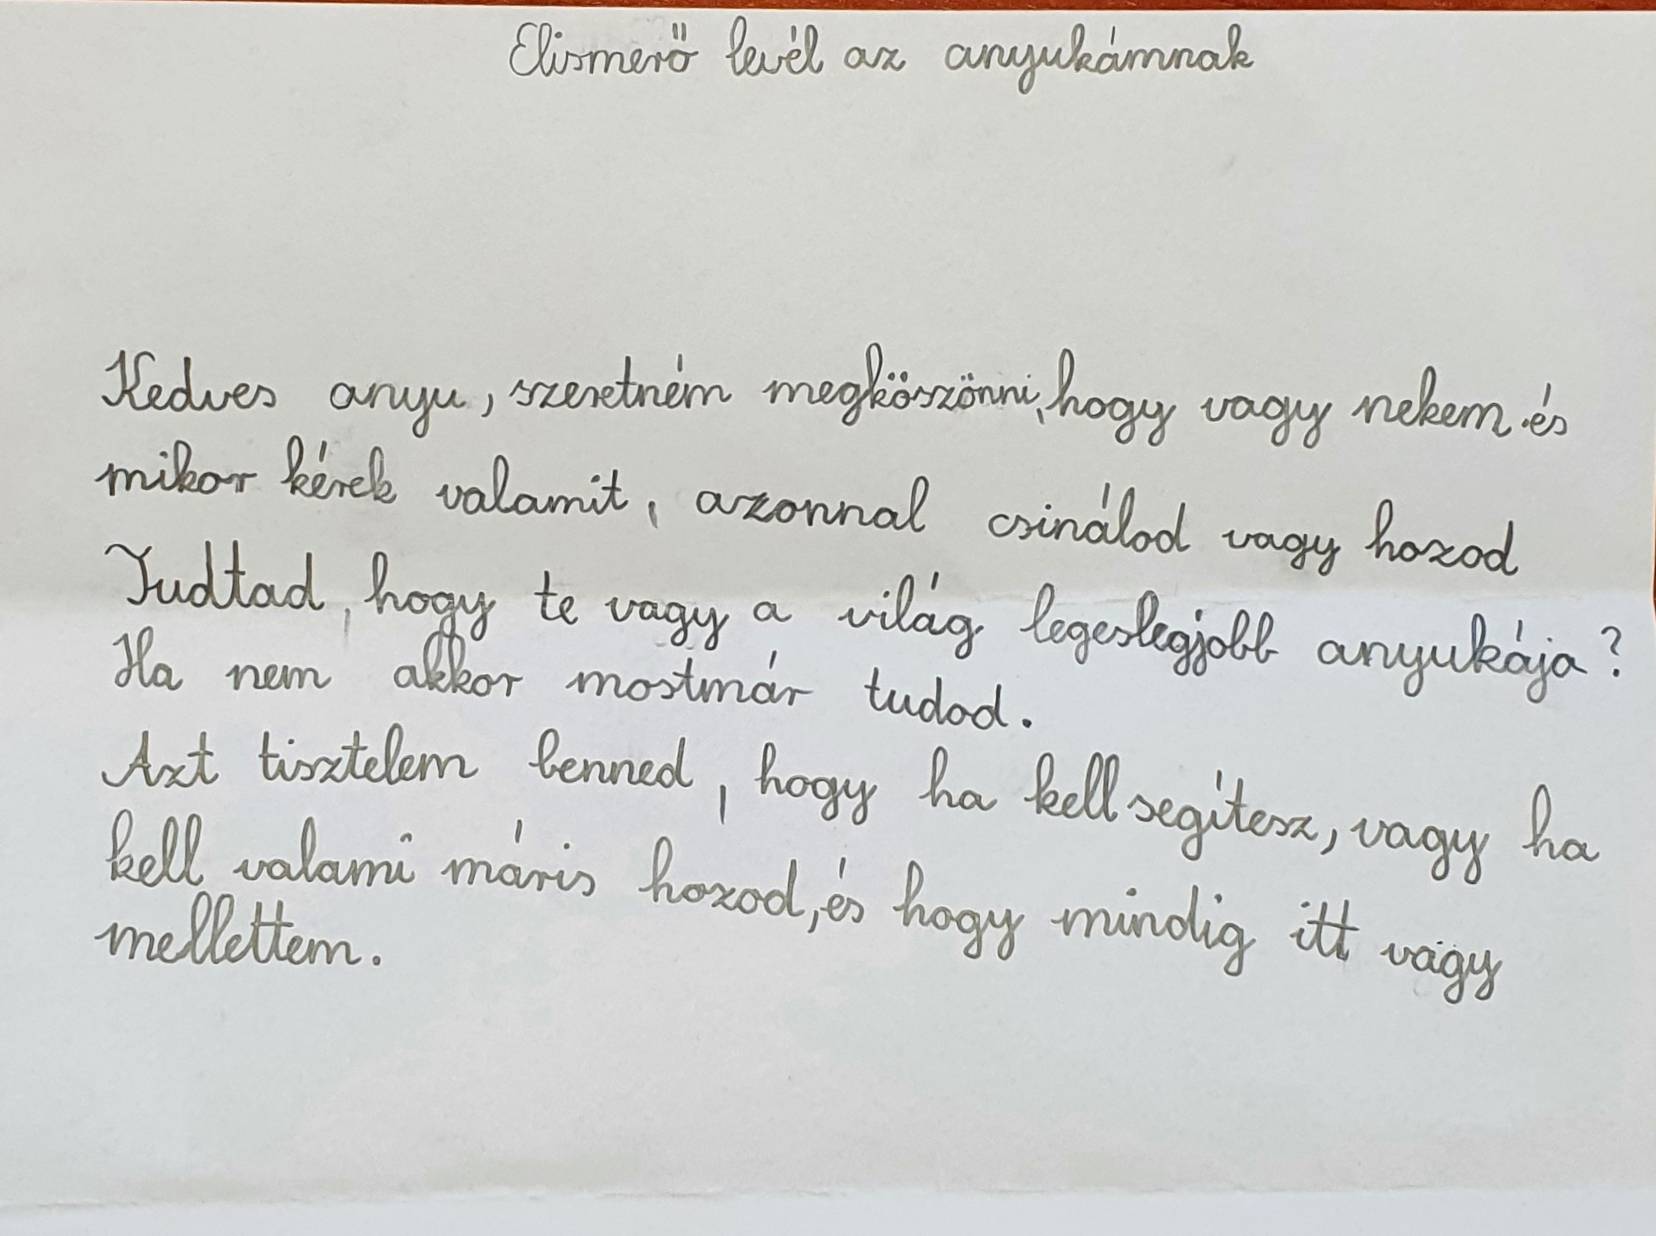 Elismerő levél az anyukámnak
Kedves anyu, szeretném megköszönni, hogy vagy nekem és
mikor kérek valamit, azonnal csinálod vagy hozod
Tudtad, hogy te vagy a világ legeslegjobb anyukája?
Ha nem akkor mostmár tudod.
Azt tisztelem benned, hogy ha kell segítesz, vagy ha
kell valami máris hozod, és hogy mindig itt vagy
mellettem.